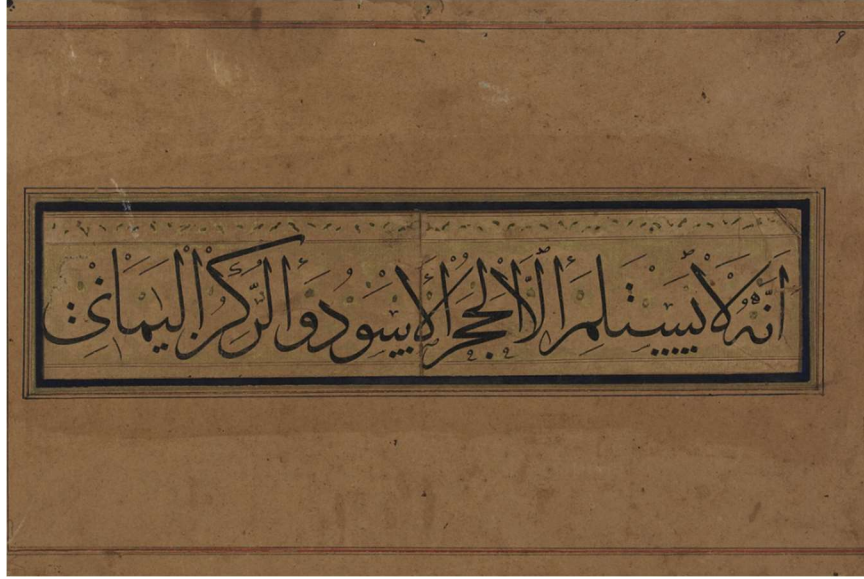 ٩
أنه لا يستلم إلا الحجر الأسود والركن اليماني